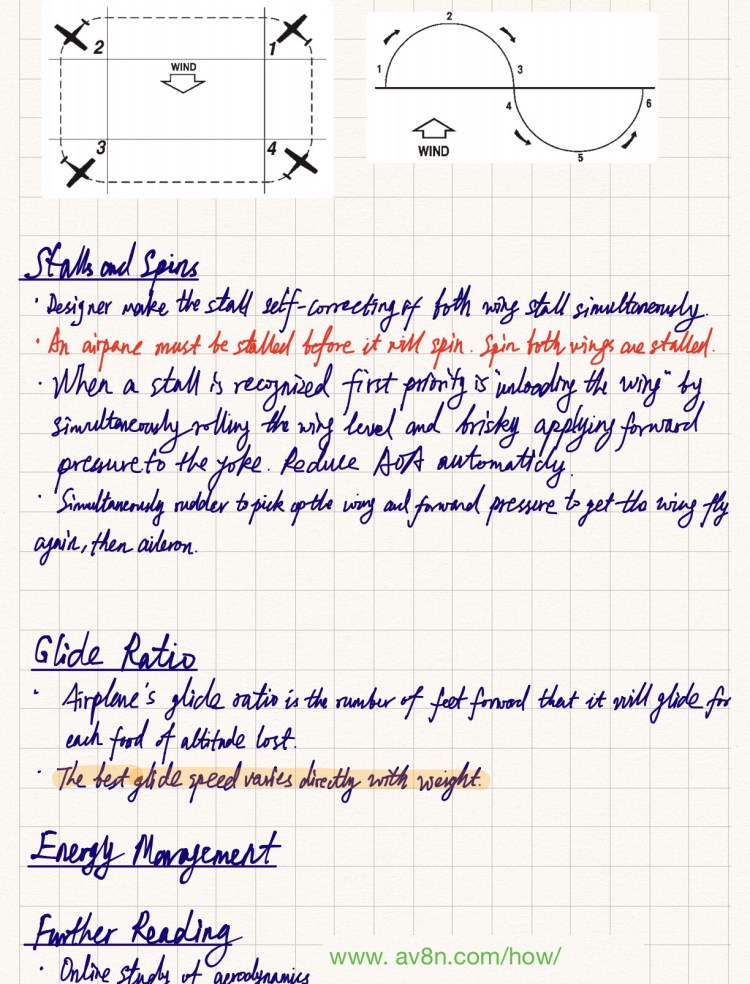 2
1
WIND
3
4
2
1
3
4
6
WIND
5
Stalls and Spins
· Designer make the stall self-correcting if both wing stall simultaneously.
· An airpane must be stalled before it will spin. Spin both wings are stalled.
· When a stall is recognized first priority is "unloading the wing" by
simultaneously rolling the wing level and briskey applying forward
pressure to the yoke. Reduce AOA automaticly.
· Simultaneously rudder to pick up the wing and forward pressure to get the wing fly
again, then aileron.
Glide Ratio
· Airplane's glide ratio is the number of feet forward that it will glide for
each food of altitude lost.
· The best glide speed varies directly with weight.
Energy Management
Further Reading
www. av8n.com/how/
· Online study of aerodynamics